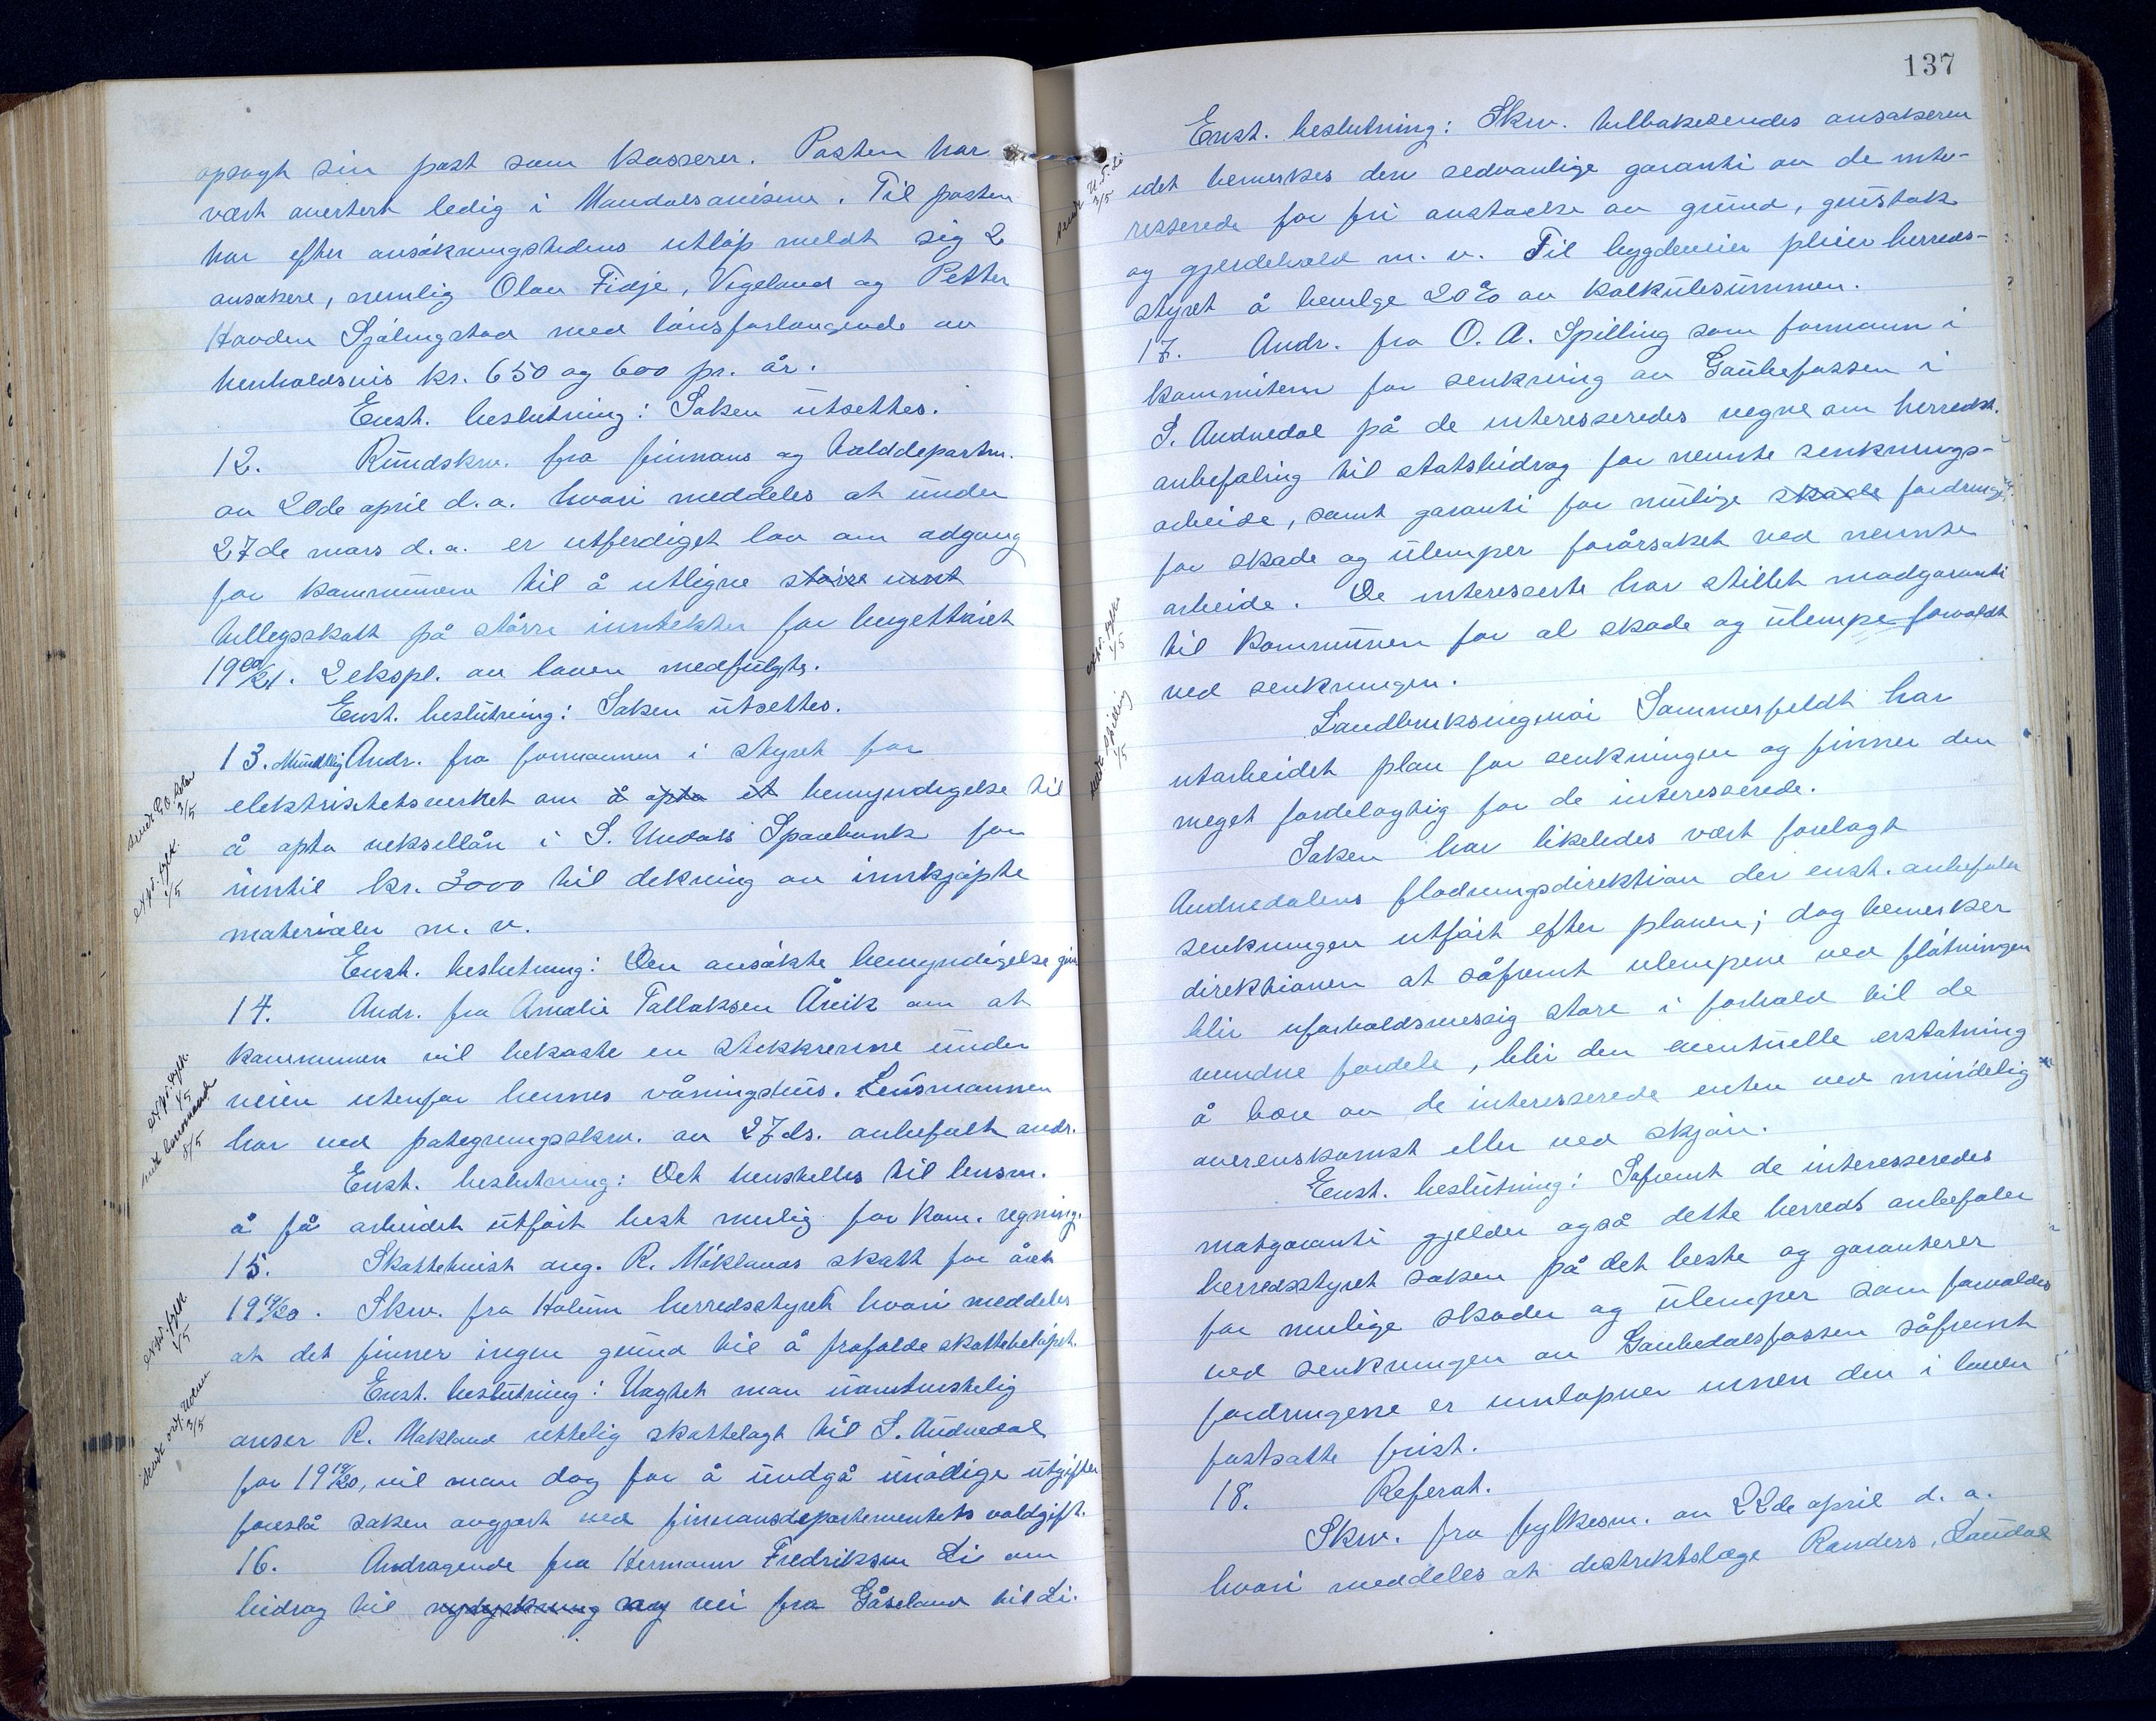 opsagt sin post som kasserer. Posten har
vært avertert ledig i Mandalsavisene. Til posten
har efter ansökningstidens utlöp meldt sig 2
ansökere, nemlig Olav Fidje, Vigeland og Petter
Hovden Sjölingstad med lönsforlangende av
henholdsvis kr. 650 og 600 pr. år.
Enst. beslutning: Saken utsettes.
12. Rundskrv. fra finans og tolddepartm.
av 20de april d.a. hvori meddeles at under
27de mars d.a. er utferdiget lov om adgang
for kommunene til å utligne større innt
tillegsskatt på større inntekter for bugettåret
1920/21. 2 ekspl. av loven medfulgte.
Enst. beslutning: Saken utsettes.
13. Mundtlig Andr. fra formannen i styret for
elektrisitetsverket om å opta et bemyndigelse til
å opta veksellån i S. Undals Sparebank for
inntil kr. 3000 til dekning av innkjöpte
materialer m. v.
Enst. beslutning: Den ansökte bemyndigelse gis
14. Andr. fra Amalie Tallaksen Åvik om at
kommunen vil bekoste en stikkrenne under
veien utenfor hennes våningshus. Lensmannen
har ved påtegningsskrv. av 27 ds. anbefalt andr.
Enst. beslutning: Det henstilles til lensm.
å få arbeidet utfört best mulig for kom. regning.
15. Skattetvist ang. R. Möklands skatt for året
1919/20. Skrv. fra Holum herredsstyret hvori meddeles
at det finner ingen grund til å frafalde skattebelöpet.
Enst. beslutning: Uagtet man uomtvistelig
anser R. Mökland rettelig skattelagt til S. Audnedal
for 1919/20, vil man dog for å undgå unödige utgifter
foreslå saken avgjort ved finnansdepartementets voldgift.
16. Andragende fra Hermann Fredriksen Li om
bidrag til nydyrkning ny vei fra Gåseland til Li.
137
Enst. beslutning: Skrv. tilbakesendes ansökeren
idet bemerkes den sedvanlige garanti av de inte-
resserede for fri avståelse av grund, grustak
og gjerdehold m. v. Til bygdeveier pleier herreds-
styret å bevilge 20% av kalkulesummen.
17. Andr. fra O. A. Spilling som formann i
kommiteen for senkning av Gaubefossen i
S. Audnedal på de interesseredes vegne om herredst.
anbefaling til statsbidrag for nevnte senknings-
arbeide, samt garanti for mulige skade fordringer
for skade og ulemper forårsaket ved nevnte
arbeide. De interesserte har stillet modgaranti
til kommunen for al skade og ulempe forvoldt
ved senkningen.
Landbruksingeniör Sommerfeldt har
utarbeidet plan for senkningen og finner den
meget fordelagtig for de interesserede.
Saken har likeledes vært forelagt
Audnedalens flödningsdirektion der enst. anbefaler
senkningen utfört efter planen; dog bemerker
direktionen at såfremt ulempene ved flötningen
blir uforholdsmessig store i forhold til de
vundne fordele, blir den eventuelle erstatning
å bære av de interesserede enten ved mindelig
overenskomst eller ved skjön.
Enst. beslutning: Såfremt de interesseredes
motgaranti gjelder også dette herred anbefaler
herredsstyret saken på det beste og garanterer
for mulige skader og ulemper som forvoldes
ved senkningen av Gaubedalsfossen såfremt
fordringene er innlöpner innen den i loven
fastsatte frist.
18. Referat.
Skrv. fra fylkesm. av 22de april d. a.
hvori meddeles at distriktslæge Randers, Laudal
expv. fylk.
1/5
expv. fylk.
1/5
sendt lensmand.
3/5
expv. fylk.
1/5
3/5
sendt Spilling
1/5